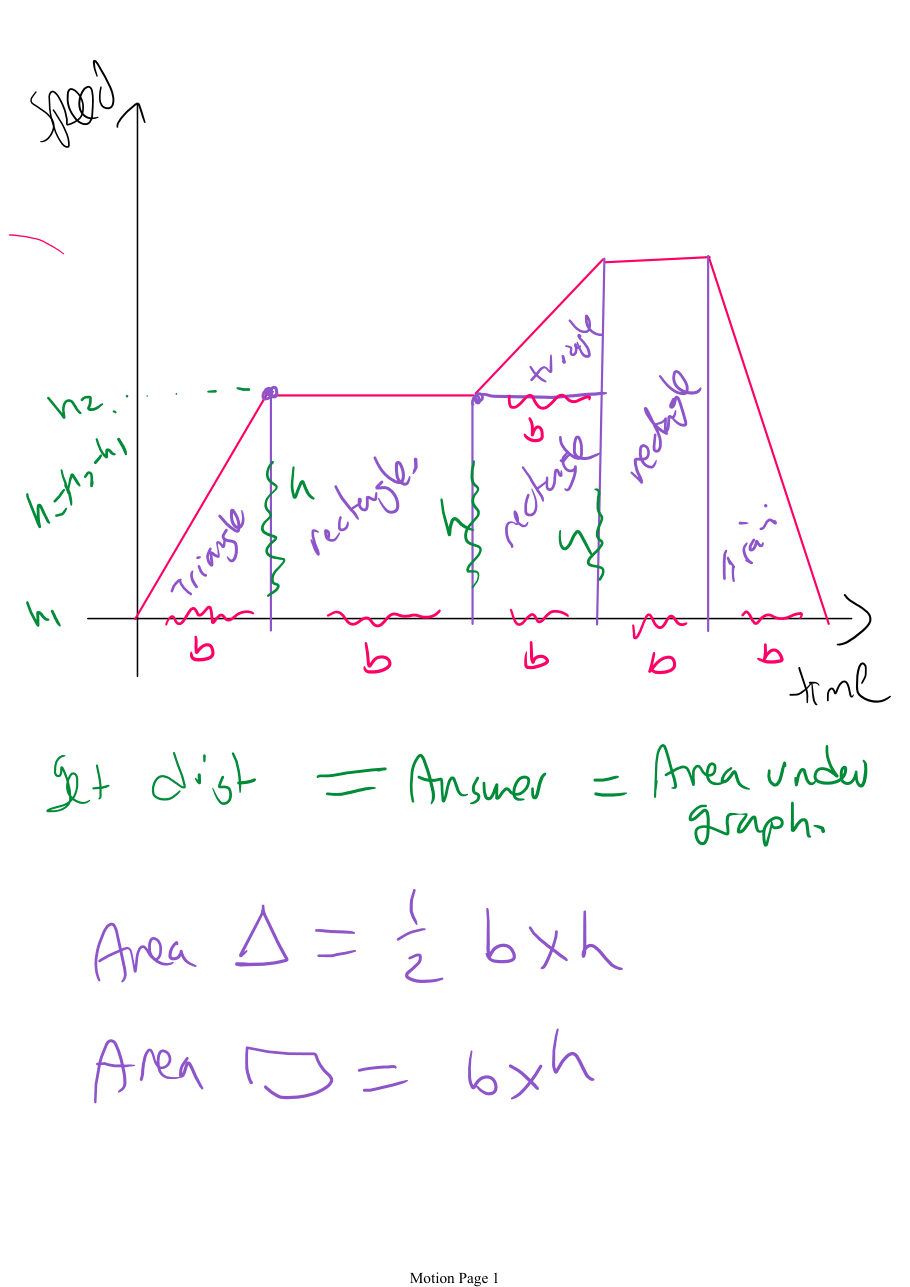 speed
h2
h = h2 - h1
h1
h
h
h
triangle
rectangle
triangle
rectangle
rectangle
b
b
b
b
b
b
time
get dist = Answer = Area under
graph.
Area Δ = 1/2 b x h
Area = b x h
Motion Page 1